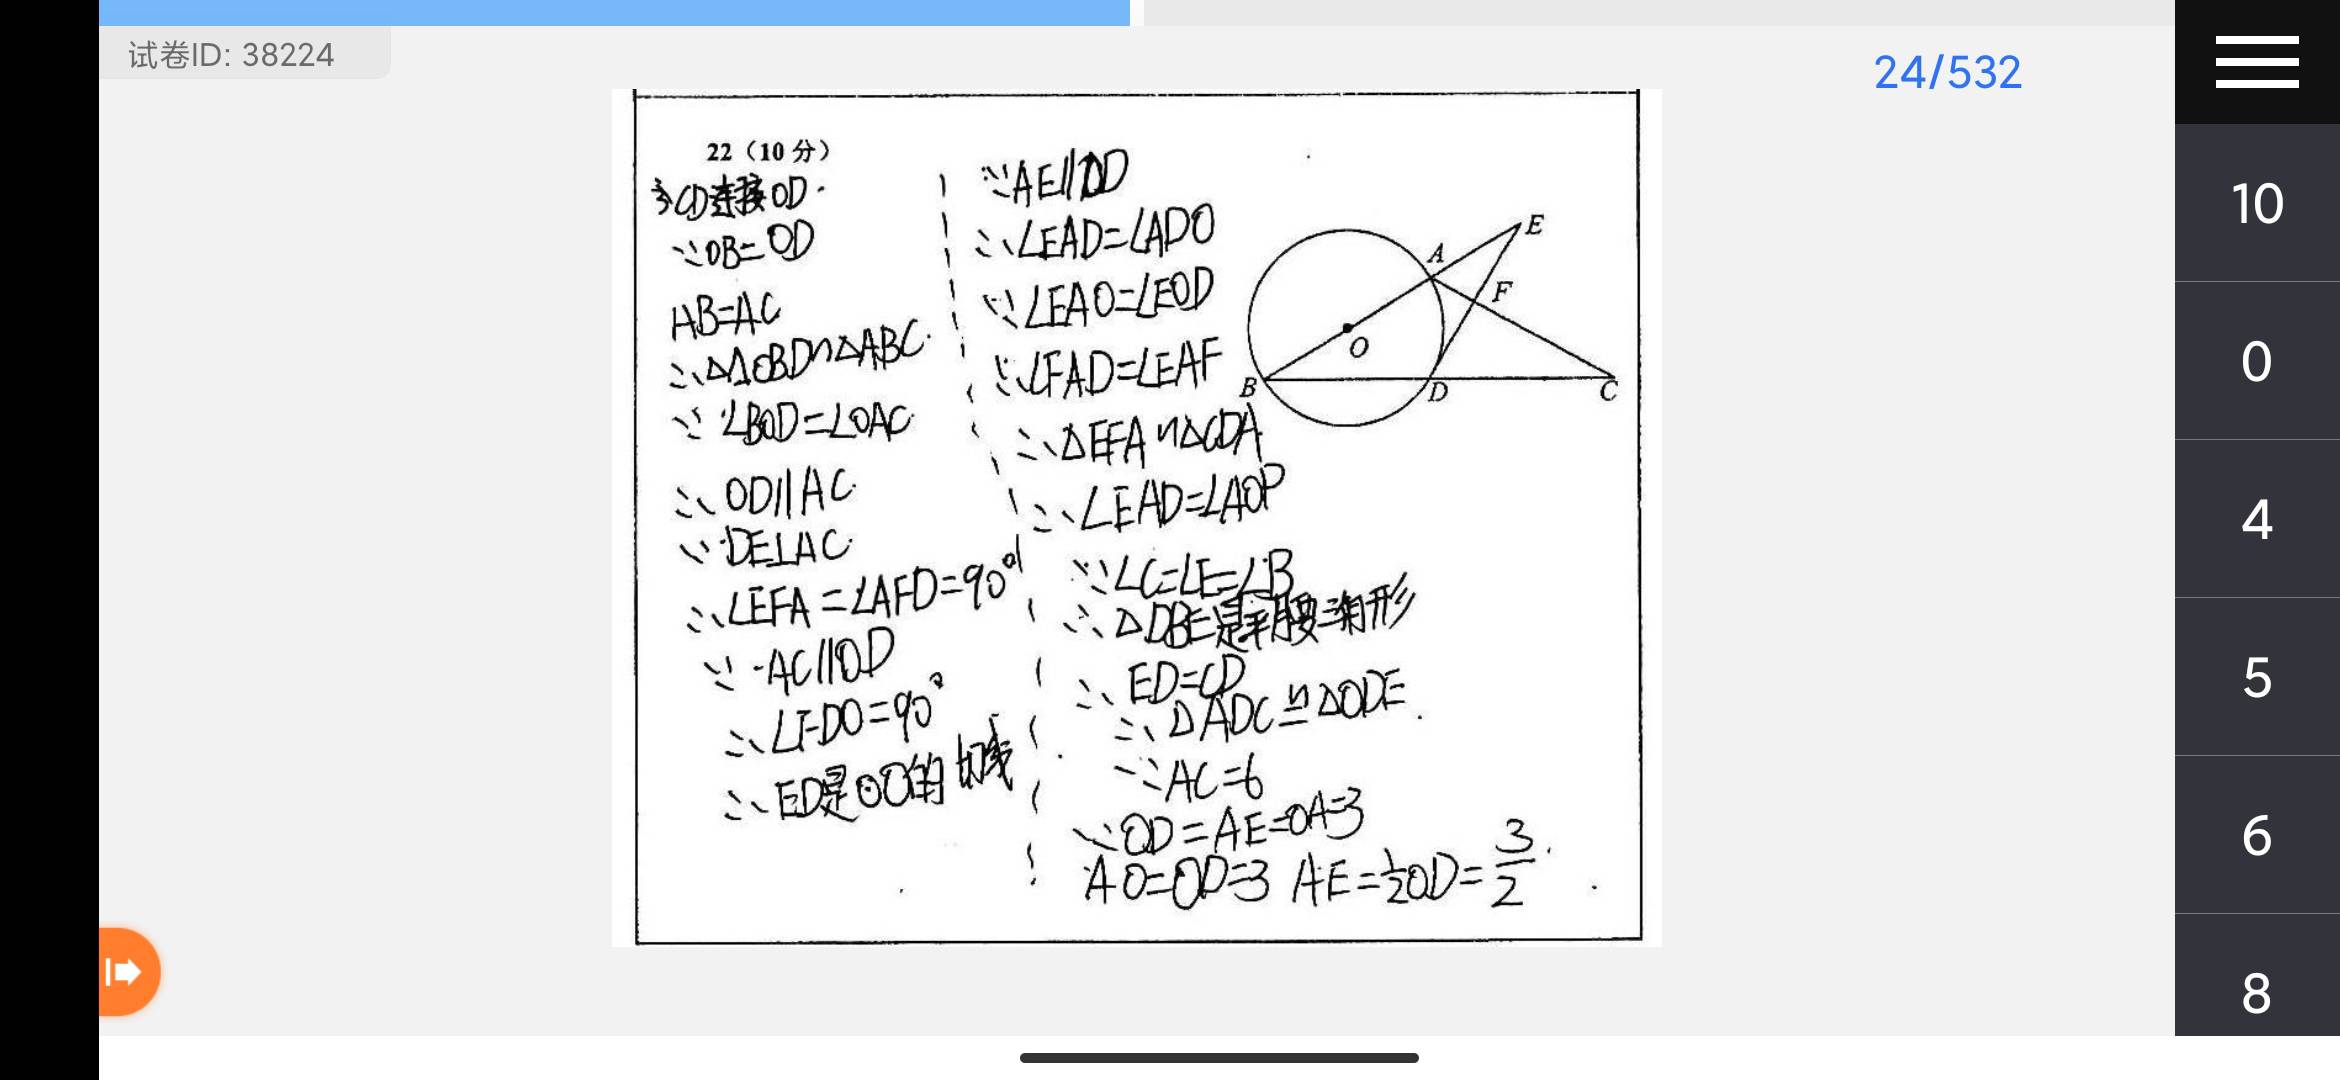 试卷ID: 38224
24/532
22（10 分）
连接OD.
∵OB=OD
AB=AC
∴△OBD∽△ABC.
∵∠BOD=∠OAC
∴OD∥AC
∵DE⊥AC
∴∠EFA=∠AFD=90°
∵AC∥OD
∴∠FDO=90°
∴ED是⊙O的切线
∵AE∥OD
∴∠EAD=∠ADO
∵∠EAO=∠EOD
∵∠FAD=∠EAF
∴△EFA∽△CDA
∴∠EAD=∠AOP
∵∠C=∠E=∠B
∴△DBE是等腰三角形
∴ED=CD
∴△ADC≌△ODE.
∵AC=6
∵OD=AE=OA=3
AO=OD=3 AE=1/2OD=3/2.
E
A
F
O
B
D
C
10
0
4
5
6
8